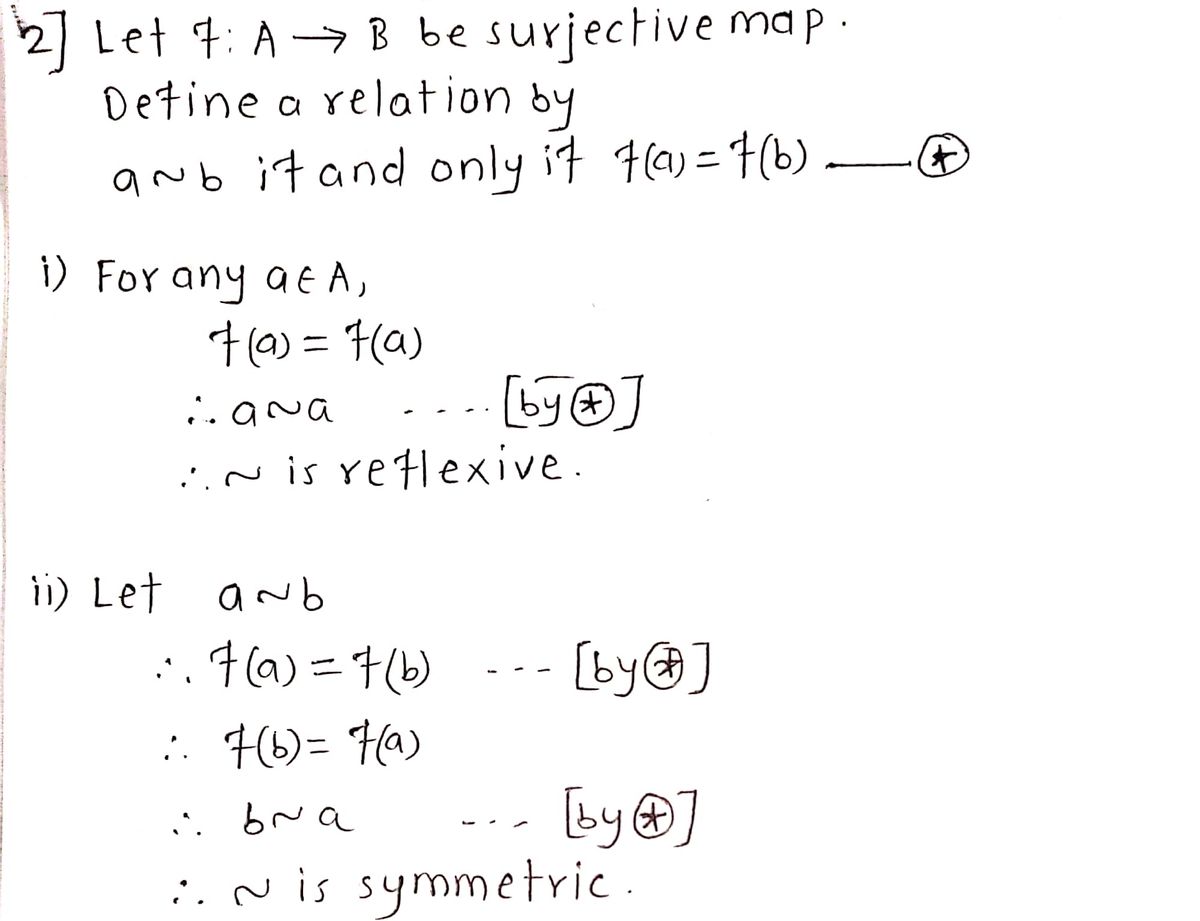 2] Let f: A → B be surjective map.
Define a relation by
a~b if and only if f(a) = f(b) —⊛
i) For any a∈A,
f(a) = f(a)
∴ a~a .... [by ⊛]
∴ ~ is reflexive.
ii) Let a~b
∴ f(a) = f(b) --- [by ⊛]
∴ f(b) = f(a)
∴ b~a --- [by ⊛]
∴ ~ is symmetric.